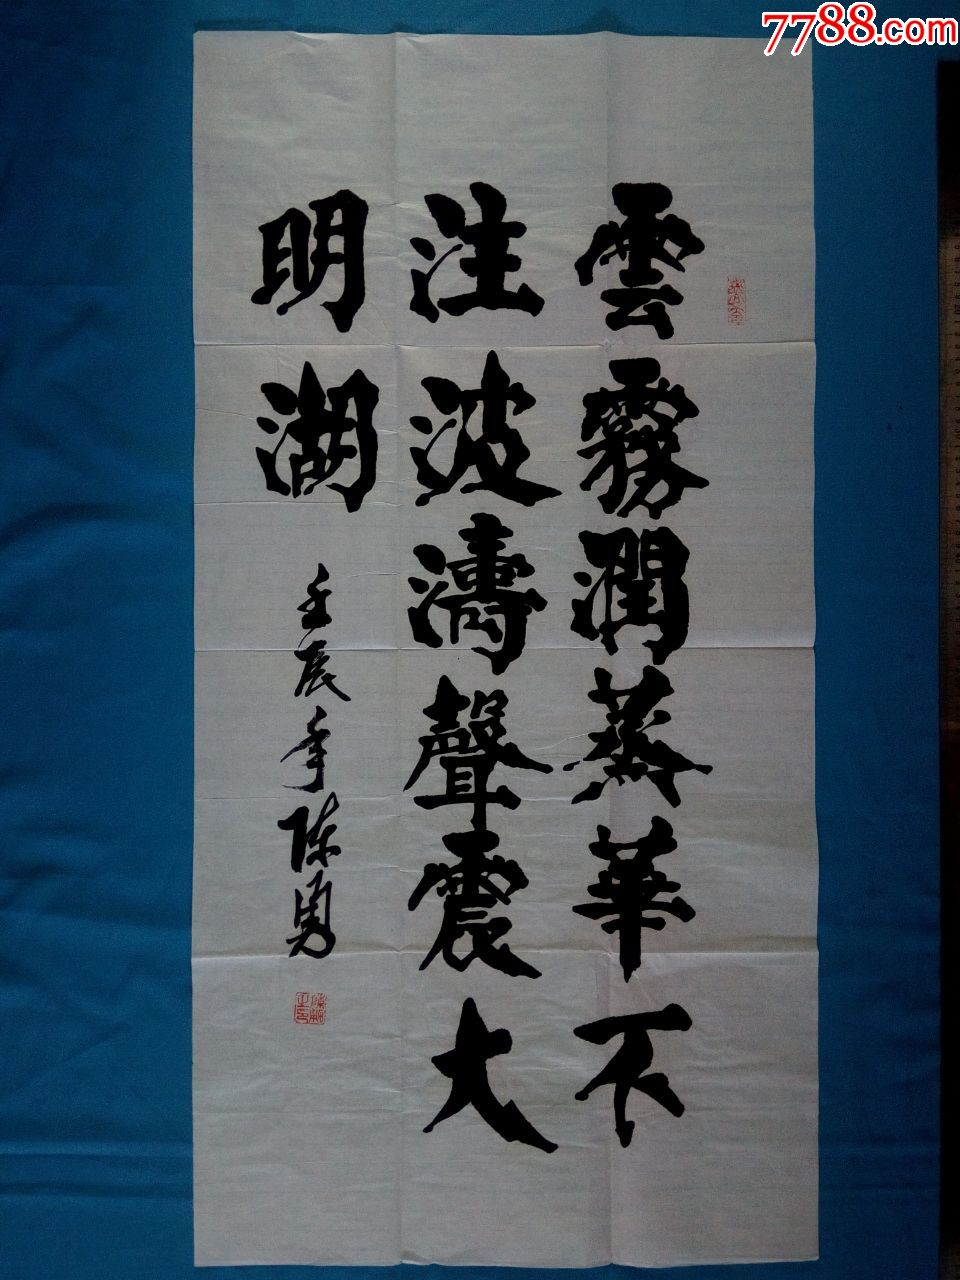 7788.com
雲霧潤蒸華不
注波濤聲震大
明湖
壬辰年陳勇